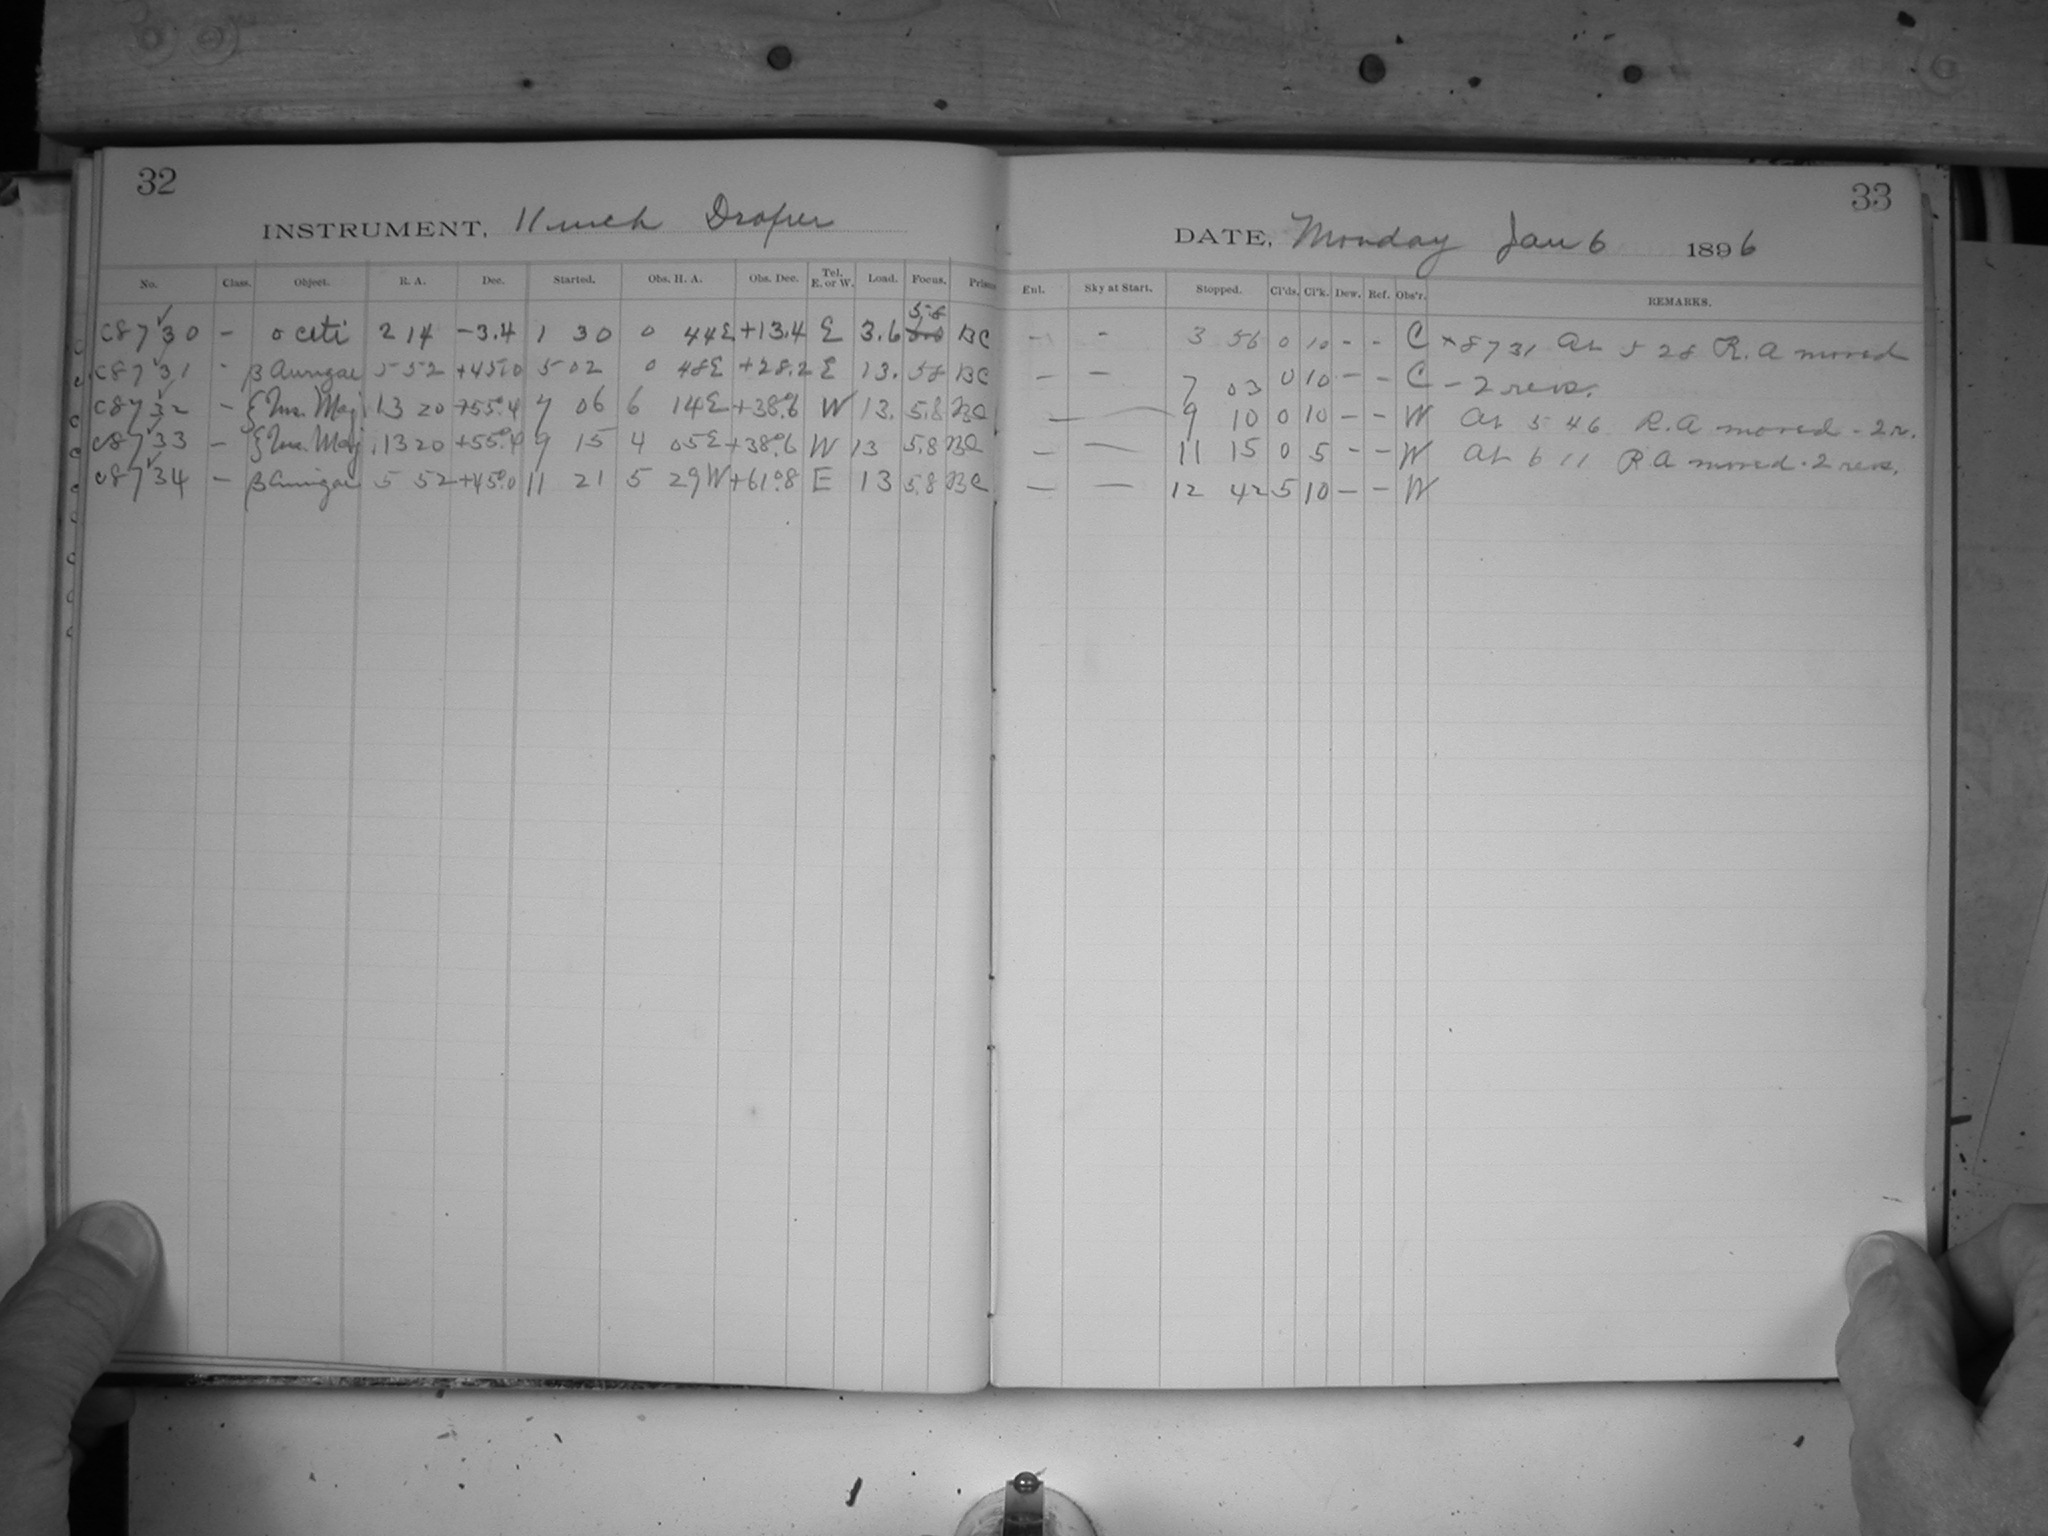 32
INSTRUMENT, 11 inch Draper
No. Class. Object. R. A. Dec. Started. Obs. H. A. Obs. Dec. Tel. E. or W. Load. Focus. Prism
C8730 - o Ceti 2 14 -3.4 1 30 0 44E +13.4 E 3.6 5.8 BC
C8731 - β Aurigae 5 52 +45.0 5 02 0 48E +28.2 E 13. 58 BC
C8732 - ζ Urs. Maj. 13 20 +55.4 7 06 6 14E +38.6 W 13. 5.8 BC
C8733 - ζ Urs. Maj. 13 20 +55.4 9 15 4 05E +38.6 W 13 5.8 BC
C8734 - β Aurigae 5 52 +45.0 11 21 5 29W +61.8 E 13 5.8 BC
33
DATE, Monday Jan 6 1896
Ent. Sky at Start. Stopped. Cl'ds. Cl'k. Dew. Ref. Obs'r. REMARKS.
- - 3 56 0 10 - - C *8731 At 5 28 R.A moved
- - 7 03 0 10 - - C - 2 revs.
- - 9 10 0 10 - - W At 5 46 R.A moved - 2 r.
- - 11 15 0 5 - - W At 6 11 R A moved - 2 revs.
- - 12 42 5 10 - - W